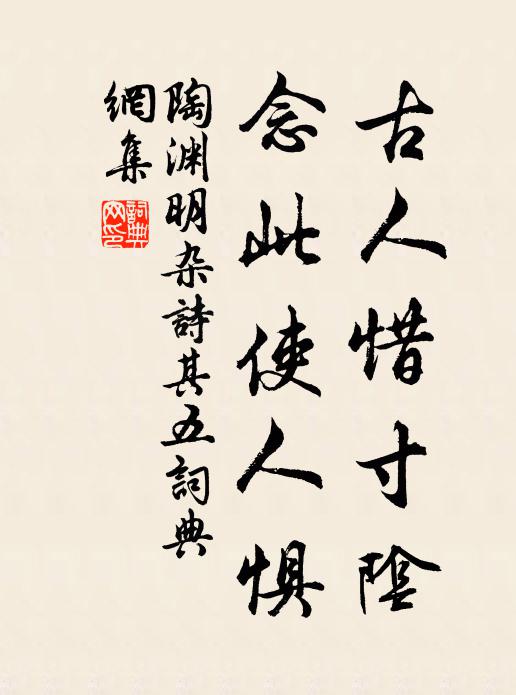 古人惜寸陰
念此使人懼
陶渊明杂詩其五詞典
網集
詞典
网印